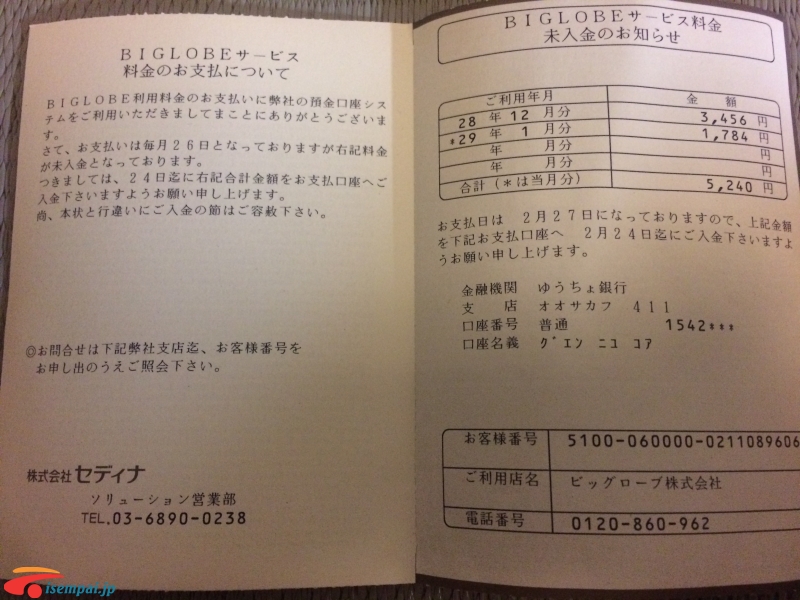 BIGLOBEサービス
料金のお支払について
BIGLOBE利用料金のお支払いに弊社の預金口座シス
テムをご利用いただきましてまことにありがとうございま
す。
さて、お支払いは毎月26日となっておりますが右記料金
が未入金となっております。
つきましては、24日迄に右記合計金額をお支払口座へご
入金下さいますようお願い申し上げます。
尚、本状と行違いにご入金の節はご容赦下さい。
◎お問合せは下記弊社支店迄、お客様番号を
お申し出のうえご照会下さい。
株式会社 セディナ
ソリューション営業部
TEL.03-6890-0238
BIGLOBEサービス料金
未入金のお知らせ
ご利用年月 金 額
28 年 12 月分 3,456 円
*29 年 1 月分 1,784 円
年 月分 円
年 月分 円
合計(*は当月分) 5,240 円
お支払日は 2月27日になっておりますので、上記金額
を下記お支払口座へ 2月24日迄にご入金下さいますよ
うお願い申し上げます。
金融機関 ゆうちょ銀行
支 店 オオサカフ 411
口座番号 普通 1542***
口座名義 グエン ニユ コア
お客様番号 5100-060000-0211089606
ご利用店名 ビッグローブ株式会社
電話番号 0120-860-962
isempai.jp